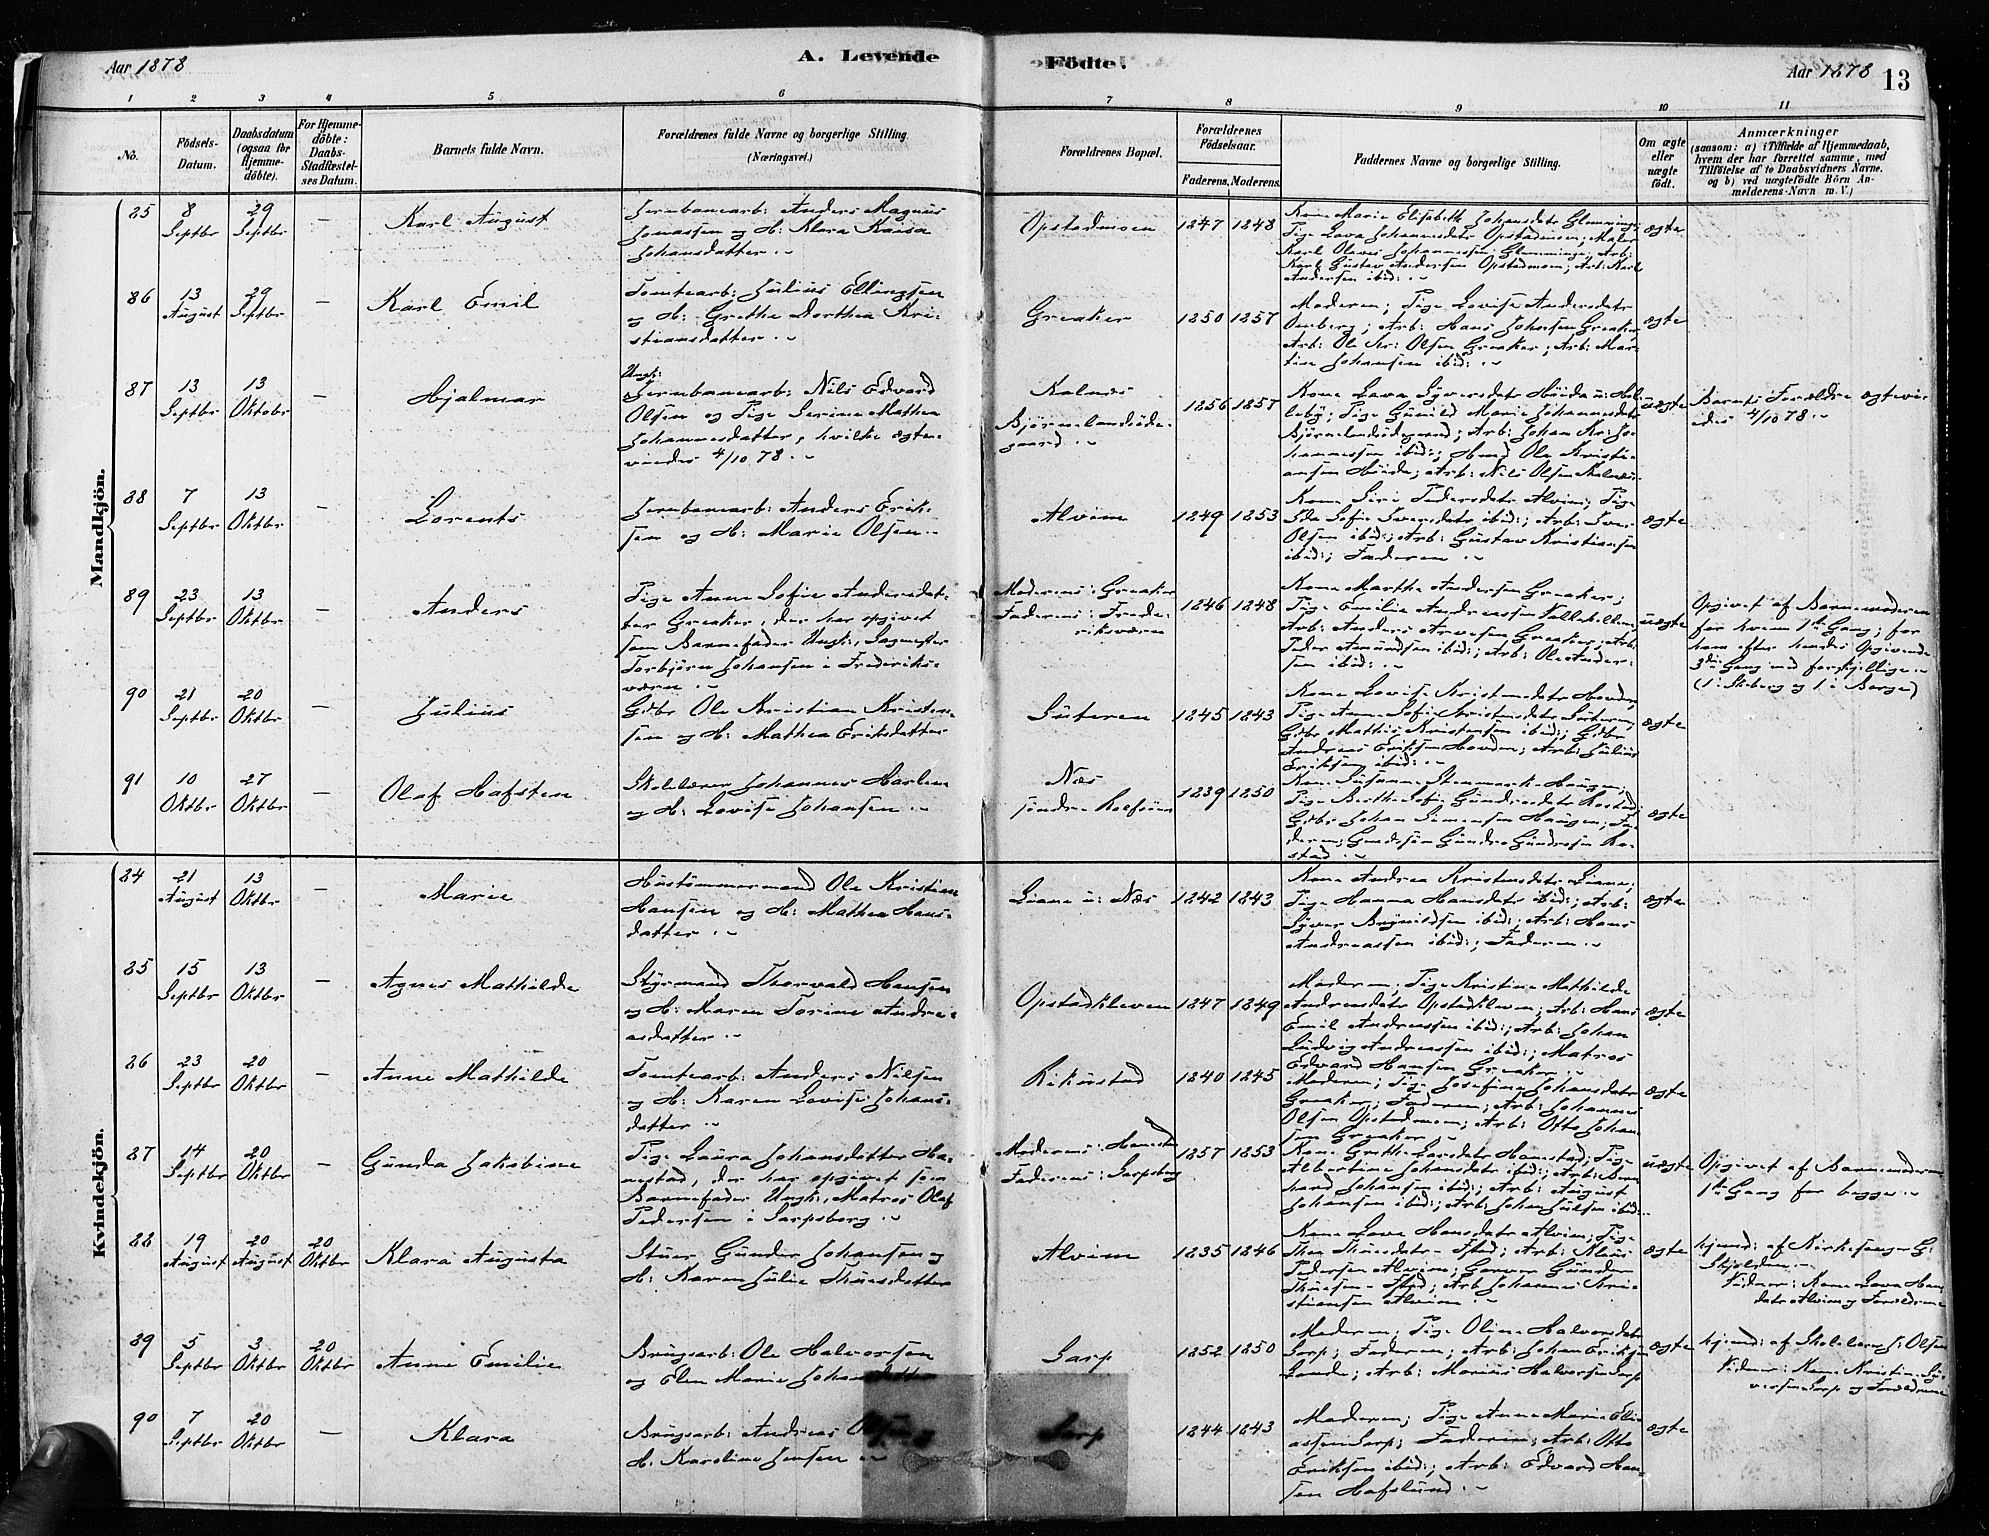 Aar 1878
A. Levende
Födte.
Aar 1878
13
1 2 3 4 5 6 7 8 9 10 11
No.
Födsels-
Datum.
Daabsdatum
(ogsaa for
Hjemme-
döbte).
For Hjemme-
döbte:
Daabs-
Stadfæstel-
ses Datum.
Barnets fulde Navn.
Forældrenes fulde Navne og borgerlige Stilling.
(Næringsvei.)
Forældrenes Bopæl.
Forældrenes
Födselsaar.
Faderens. Moderens.
Faddernes Navne og borgerlige Stilling.
Om ægte
eller
uægte
födt.
Anmærkninger
(saasom: a) i Tilfælde af Hjemmedaab,
hvem der har forrettet samme, med
Tilföielse af to Daabsvidners Navne,
og b) ved uægtefödte Börn An-
melderens Navn m. V.)
Mandkjön.
85
8
Septbr
29
Septbr
—
Karl August
Jernbanearb: Anders Magnus
Jonassen og H: Klara Kaisa
Johansdatter.
Opstadmoen
1847 1848
Kone Marie Elisabeth Johansdatr Glemminge;
Tige Lava Johannesdatr Opstadmoen; Maler
Karl Olavs Johannessen Glemminge; Arb:
Karl Gustav Andersen Opstadmoen; Arb: Karl
Andersen ibid:
ægte
86
13
August
29
Septbr
—
Karl Emil
Tomtearb: Julius Ellingsen
og H: Grethe Dorthea Kri-
stiansdatter.
Greaker
1850 1857
Moderen; Tige Lovise Andersdatr
Arb: Hans Johansen Greaker,
Arb: Ole Kr: Olsen Greaker; Arb: Mar-
tin Johansen ibid:
ægte
87
13
Septbr
13
Oktobr
—
Hjalmar
Ungk:
Jernbanearb: Nils Edvard
Olsen og Tige Serine Mathea
Johannesdatter, hvilke ægte-
viedes 4/10 78.
Kalnæs
Bjørnelandsøde-
gaard
1856 1857
Kone Lava Syversdatr Høida u: Hol-
leby; Tige Gunild Marie Johannesdatr
Bjørnelandsødegaard; Arb: Johan Kr: Jo-
hannessen ibid:; Hmd Ole Kristi-
ansen Høida; Arb: Nils Olsen Kalnæs.
uægte
Barnets Forældre ægtevi-
edes 4/10 78.
88
7
Septbr
13
Oktbr
—
Lorents
Jernbanearb: Anders Erik-
sen og H: Marie Olsen.
Alvim
1849 1853
Kone Siri Pedersdatr Alvim; Tige
Ida Sofie Iversdatr ibid:; Arb: Iver
Olsen ibid:; Arb: Gustav Kristiansen
ibid:; Faderen
ægte
89
23
Septbr
13
Oktbr
—
Anders
Tige Anne Sofie Andersdat-
ter Greaker, der har opgivet
som Barnefader Ungk: Sagmester
Torbjørn Johansen i Frederiks-
værn
Moderens: Greaker
Faderens: Frede-
riksværn
1846 1848
Kone Marthe Andersen Greaker;
Tige Emilie Andreassen
Arb: Anders Arvesen Greaker; Arb:
Peder Amundsen ibid:; Arb: Ole Ander-
sen ibid:
uægte
Opgivet af Barnemoderen
for hvem 1ste Gang; for
ham efter hendes Opgivende
3die Gang med forskjellige
(1 i Skeberg og 1 i Borge)
90
21
Septbr
20
Oktbr
—
Julius
Gdbr Ole Kristian Kristen-
sen og H: Mathea Eriksdatter
Suteren
1845 1843
Kone Lovise Kristensdatr Hovden;
Tige Anne Sofie Kristensdatr Suteren;
Gdbr Mathis Kristensen ibid:; Gdbr
Andreas Eriksen Hovden; Arb: Julius
Eriksen ibid:
ægte
91
10
Oktbr
27
Oktbr
—
Olaf Hafsten
Skolelærer Johannes Harlem
og H: Lovise Johansen.
Næs
søndre Rolfsøen
1839 1850
Kone Susanne Stenmark Haugen;
Tige Berthe Sofie Gundersdatr Rostad;
Gdbr Johan Simensen Haugen; Fa-
deren; Gundro Gundersen Ro-
stad
ægte
Kvindekjön.
84
21
August
13
Oktbr
—
Marie
Hustømmermand Ole Kristian
Hansen og H: Mathea Hans-
datter.
Liane u: Næs
1842 1843
Kone Andrea Kristensdatr Liane;
Tige Hanna Hansdatr ibid:; Arb:
Syver Brynildsen ibid:; Arb: Hans
Andreassen ibid:; Faderen.
ægte
85
15
Septbr
13
Oktbr
—
Agnes Mathilde
Styrmand Thorvald Hansen
og H: Maren Torine Andre-
asdatter
Opstadkleven
1847 1849
Moderen; Tige Kristine Mathilde
Andreasdatr Opstadkleven; Arb: Hans
Emil Andreassen ibid:; Arb: Johan
Ludvig Andreassen ibid:; Matros
Edvard Hansen Greaker.
ægte
86
23
Septbr
20
Oktbr
—
Anne Mathilde
Tomtearb: Anders Nilsen
og H: Karen Lovise Johans-
datter
Rikustad
1840 1845
Moderen; Tige Josefine Johansdatr
Greaker; Faderen; Arb: Johannes
Olsen Opstadmoen; Arb: Otto Johan-
sen Greaker
ægte
87
14
Septbr
20
Oktbr
—
Gunda Jakobine
Tige Laura Johansdatter Ha-
nestad, der har opgivet som
Barnefader Ungk: Matros Olaf
Pedersen i Sarpsborg.
Moderens: Hanestad
Faderens: Sarpsborg
1857 1853
Kone Grethe Larsdatr Hanestad; Tige
Albertine Johansdatr ibid:; Arb: Bern-
hard Johansen ibid:; Arb: August
Johansen ibid:; Arb: Johan Julsen ibid:
uægte
Opgivet af Barnemoderen
1ste Gang for begge.
88
19
August
20
August
20
Oktbr
Klara Augusta
Stuer Gunder Johansen og
H: Karen Julie Thuesdatter
Alvim
1835 1846
Kone Lava Hansdatr Alvim; Tige
Thea Thuesdatr Isted; Arb: Klaus
Pedersen Alvim; Garver Gunder
Thuesen Isted; Arb: Johannes Kri-
stiansen Alvim.
ægte
hjemd: af Kirkesanger G:
Skjolden.
Vidner: Kone Lava Hans-
datr Alvim og Forældrene
89
5
Septbr
3
Oktbr
20
Oktbr
Anne Emilie
Brugsarb: Ole Halvorsen
og Elen Marie Johansdatter
Sarp
1852 1850
Moderen; Tige Oline Halvorsdatr
Sarp; Faderen; Arb: Johan Eriksen
Lande; Arb: Marius Halvorsen Sarp
ægte
hjemd: af Skolelærer J: Olsen
Vidner: Kone Kristine Sy-
versen Sarp og Forældrene
90
7
Septbr
20
Oktbr
—
Klara
Brugsarb: Andreas Olsen og
H: Karoline Jensen
Sarp
1844 1843
Moderen; Tige Anne Marie Eli-
assen Sarp; Faderen; Arb: Otto
Eriksen ibid:; Arb: Edvard Han-
sen Hafslund.
ægte